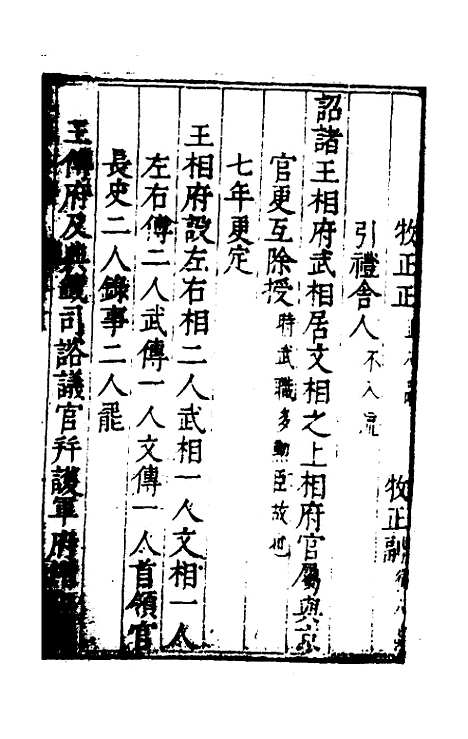 牧正正　牧正副
引禮舍人不入流
詔諸王相府武相居文相之上相府官屬與京
官更互除授時武職多勳臣故也
七年更定
王相府設左右相二人武相一人文相一人
左右傅二人武傅一人文傅一人首領官
長史二人錄事二人罷
王傅府及典籤司諮議官幷護軍府